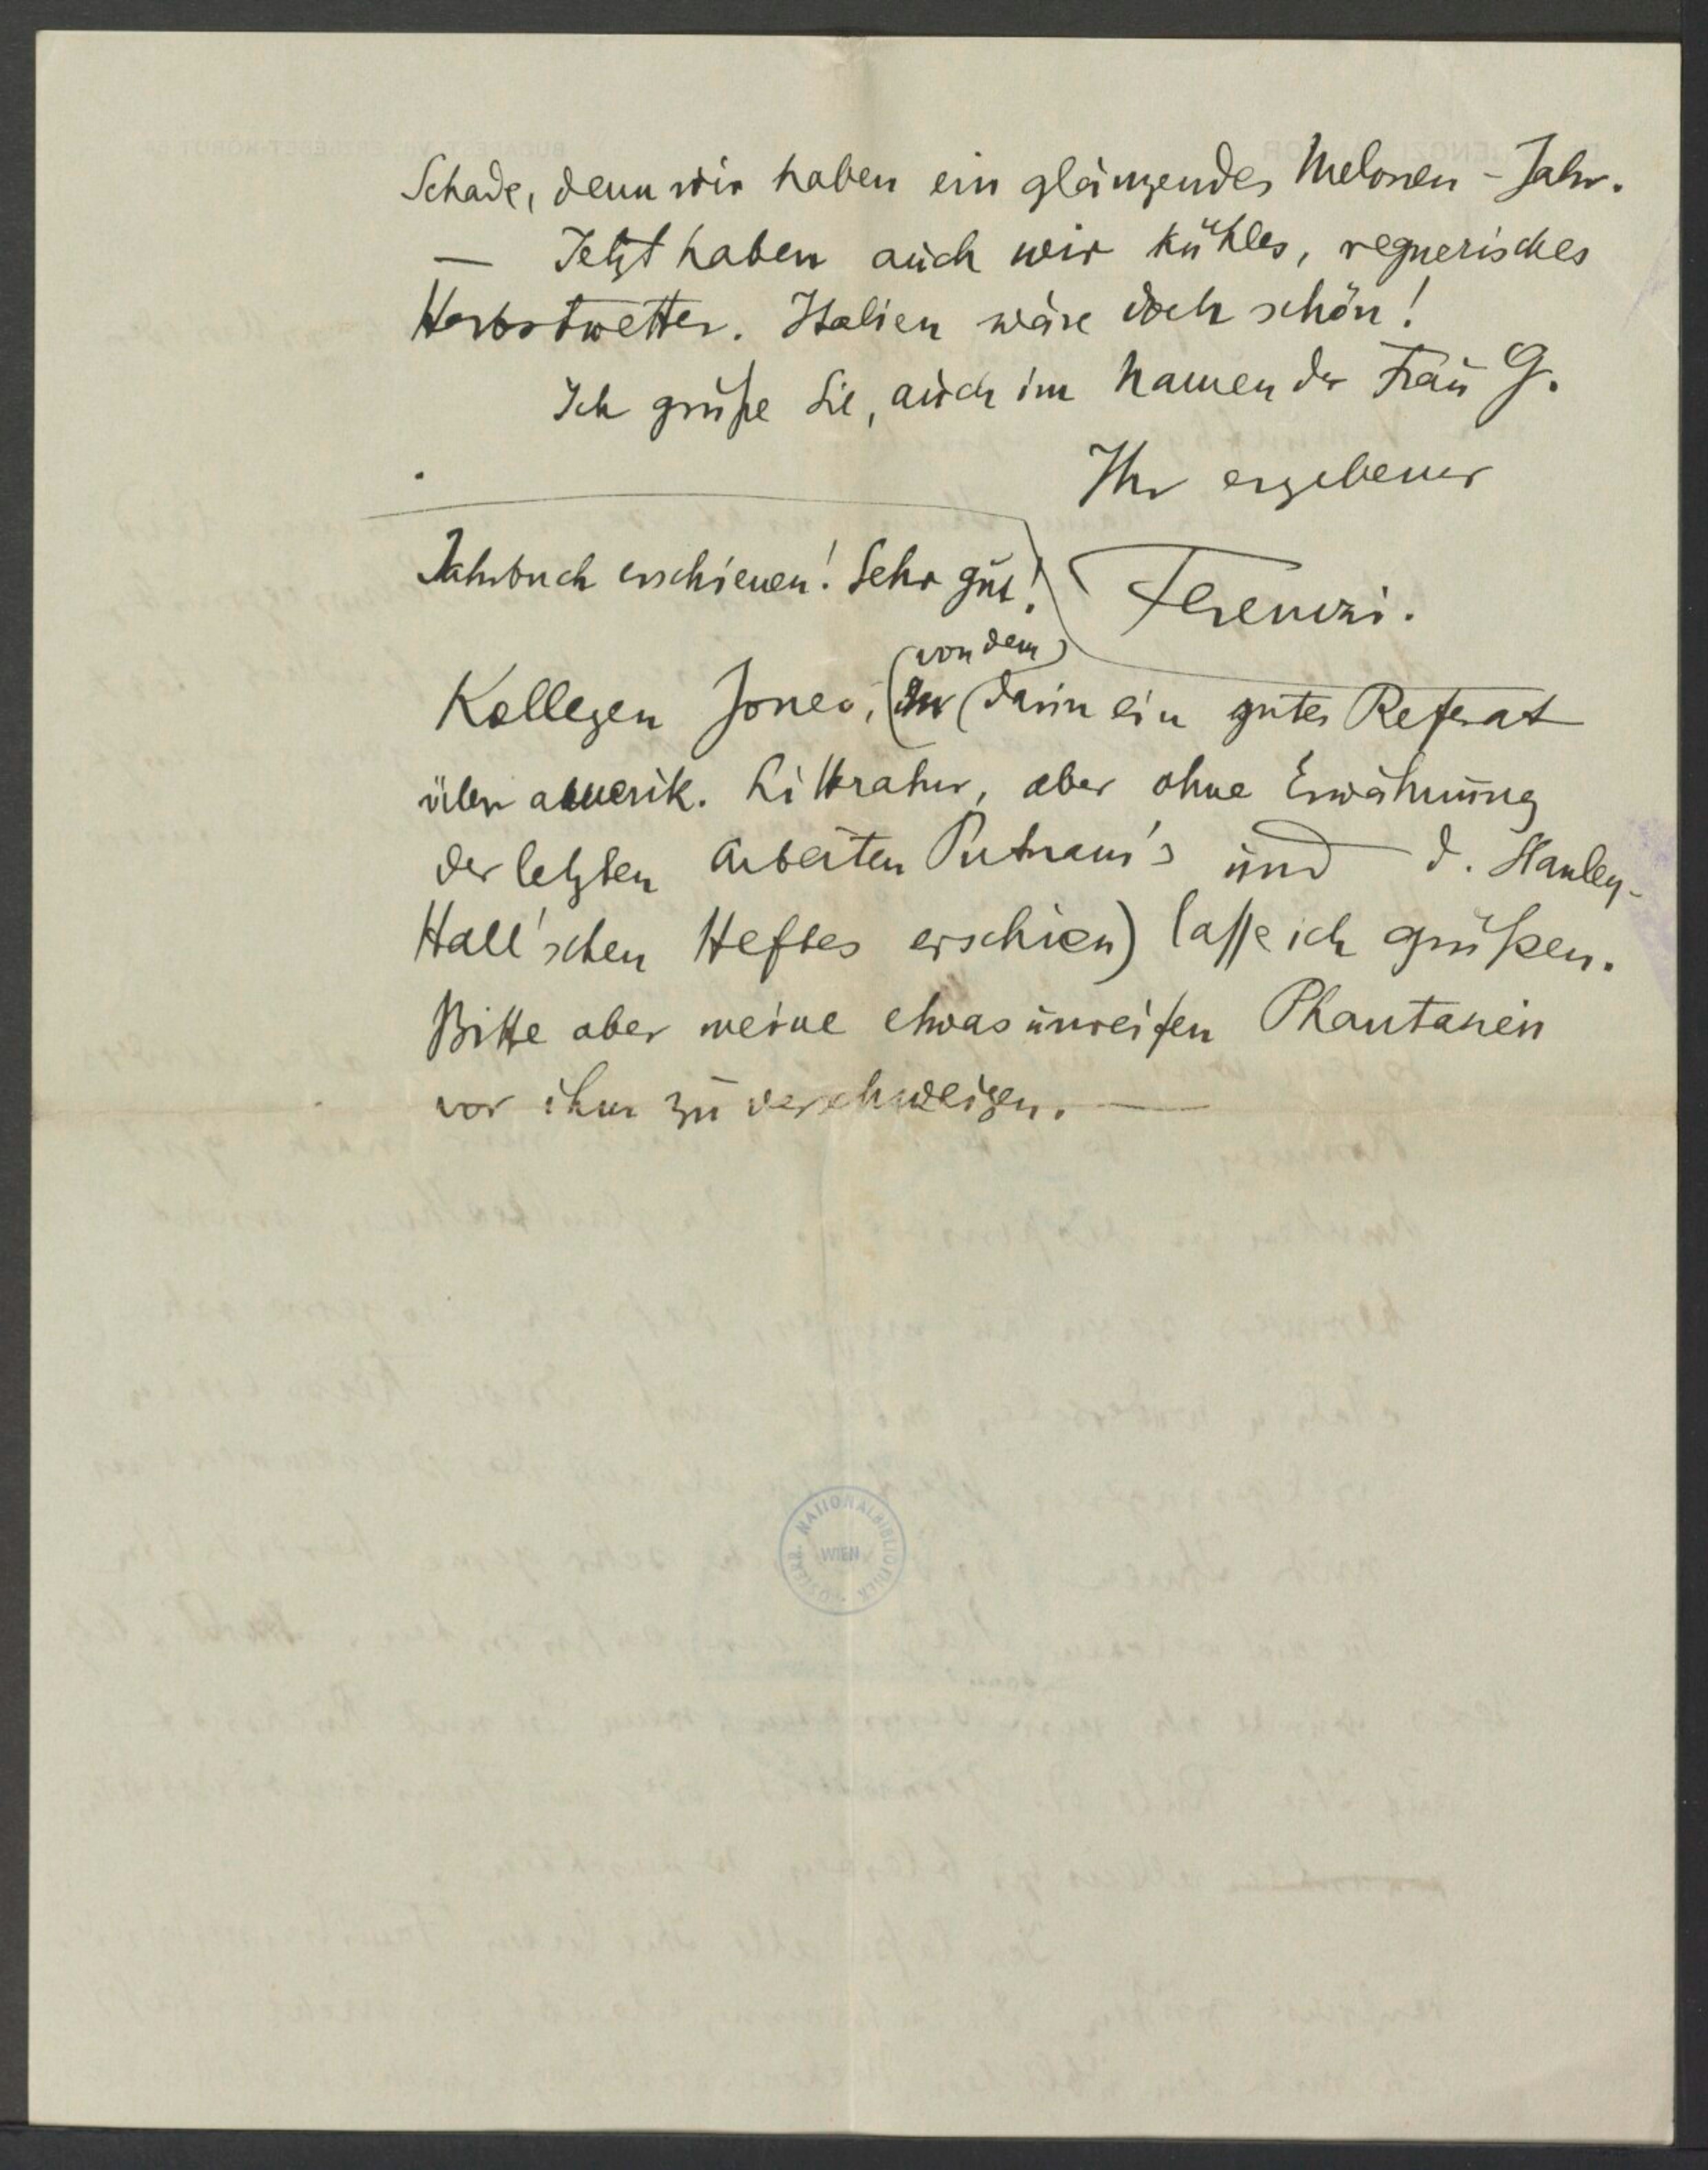 Schade, denn wir haben ein glänzendes Melonen-Jahr.
— Jetzt haben auch wir kühles, regnerisches
Herbstwetter. Italien wäre doch schön!
Ich grüße Sie, auch im Namen der Frau G.
Ihr ergebener
Ferenczi.
Jahrbuch erschienen! Sehr gut!
Kollegen Jones, (von dem darin ein gutes Referat
über amerik. Litteratur, aber ohne Erwähnung
der letzten Arbeiten Putnam's und d. Stanley-
Hall'schen Heftes erschien) lasse ich grüßen.
Bitte aber meine etwas unreifen Phantasien
vor ihm zu verschweigen. —
ÖSTERR. NATIONALBIBLIOTHEK
WIEN